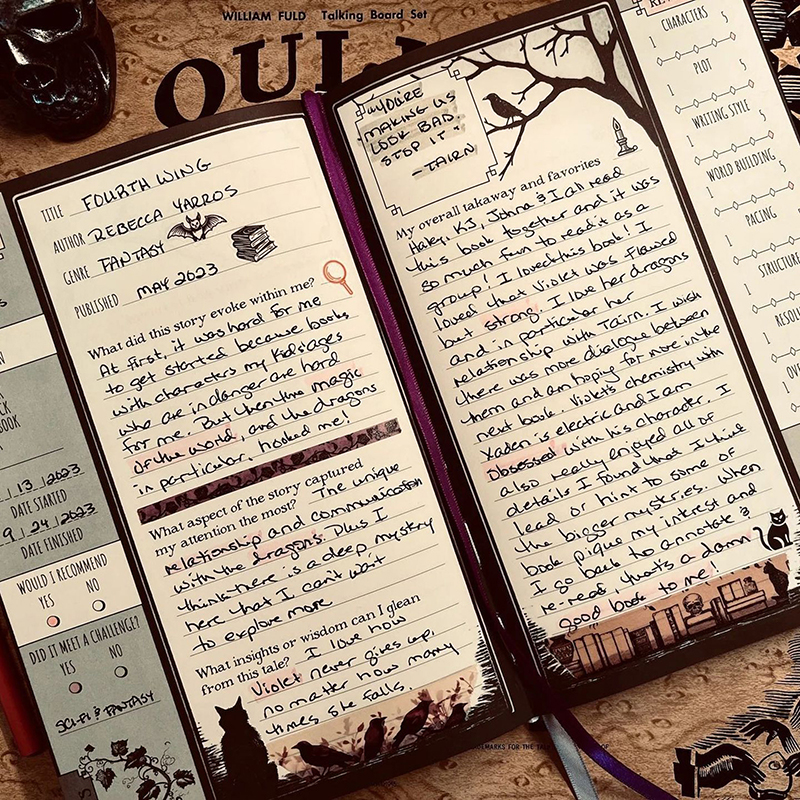 WILLIAM FULD Talking Board Set
OUIJ
TITLE FOURTH WING
AUTHOR REBECCA YARROS
GENRE FANTASY
PUBLISHED MAY 2023
What did this story evoke within me?
At first, it was hard for me
to get started because books
with characters my kids' ages
who are in danger are hard
for me. But then the magic
of the world, and the dragons
in particular, hooked me!
What aspect of the story captured
my attention the most? The unique
relationship and communication
with the dragons. Plus I
think there is a deep mystery
here that I can't wait
to explore more
What insights or wisdom can I glean
from this tale? I love how
Violet never gives up,
no matter how many
times she falls.
"YOU'RE
MAKING US
LOOK BAD.
STOP IT"
-TAIRN
My overall takaway and favorites
Haley, KJ, & I all read
this book together and it was
so much fun to read it as a
group! I loved this book! I
loved that Violet was flawed
but strong. I love her dragons
and in particular her
relationship with Tairn. I wish
there was more dialogue between
them and am hoping for more in the
next book. Violet's chemistry with
Xaden is electric and I am
obsessed with his character. I
also really enjoyed all of
details I found that I think
lead or hint to some of
the bigger mysteries. When
book pique my interest and
I go back to annotate &
re-read, that's a damn
good book to me!
BOOK
13 2023
DATE STARTED
9 24 2023
DATE FINISHED
WOULD I RECOMMEND
YES NO
DID IT MEET A CHALLENGE?
YES NO
SCI-FI & FANTASY
CHARACTERS
1 5
PLOT
1 5
WRITING STYLE
1 5
WORLD BUILDING
1 5
PACING
1
STRUCTURE
1
RESOL
1
OV
1